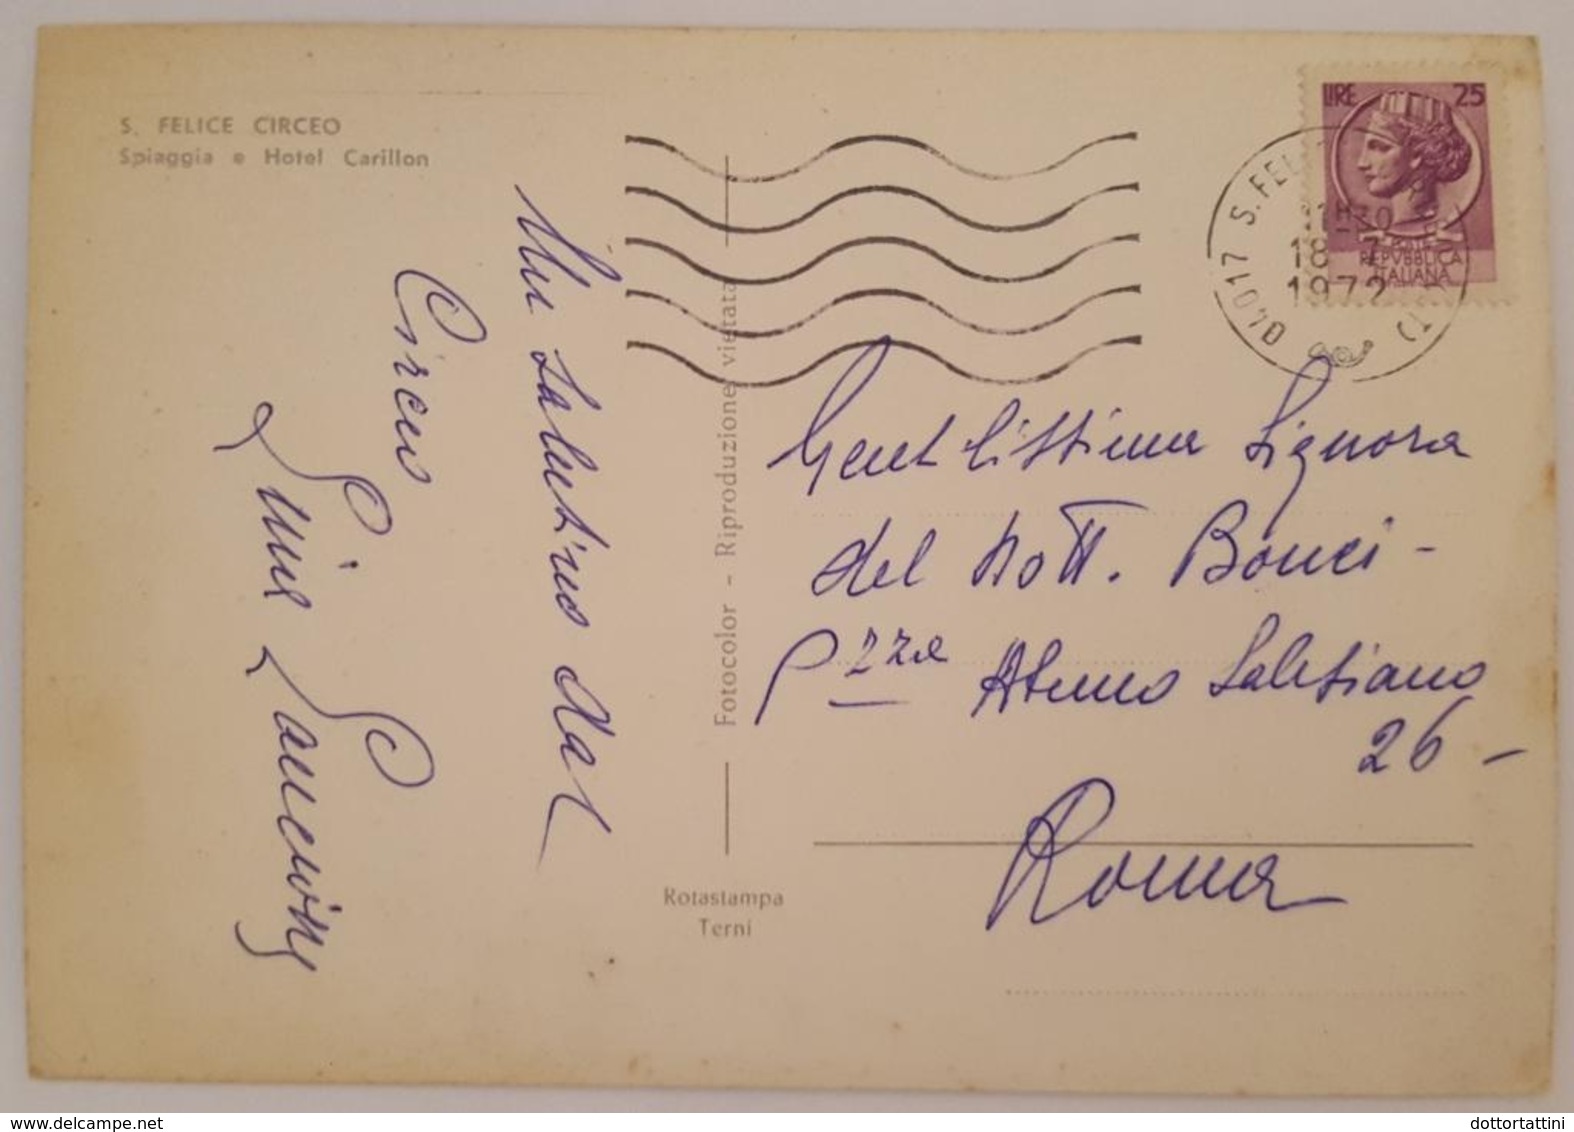 S. FELICE CIRCEO
Spiaggia e Hotel Carillon
Un salutino dal
Circeo
Fotocolor - Riproduzione vietata
Rotastampa
Terni
LIRE 25
POSTE
REPVBBLICA
ITALIANA
04017 S. FEL
18 7
1972
(LT)
Gentilissima Signora
del Dott. Bonci -
P.zza Ateneo Salesiano
26 -
Roma
www.delcampe.net
dottortattini